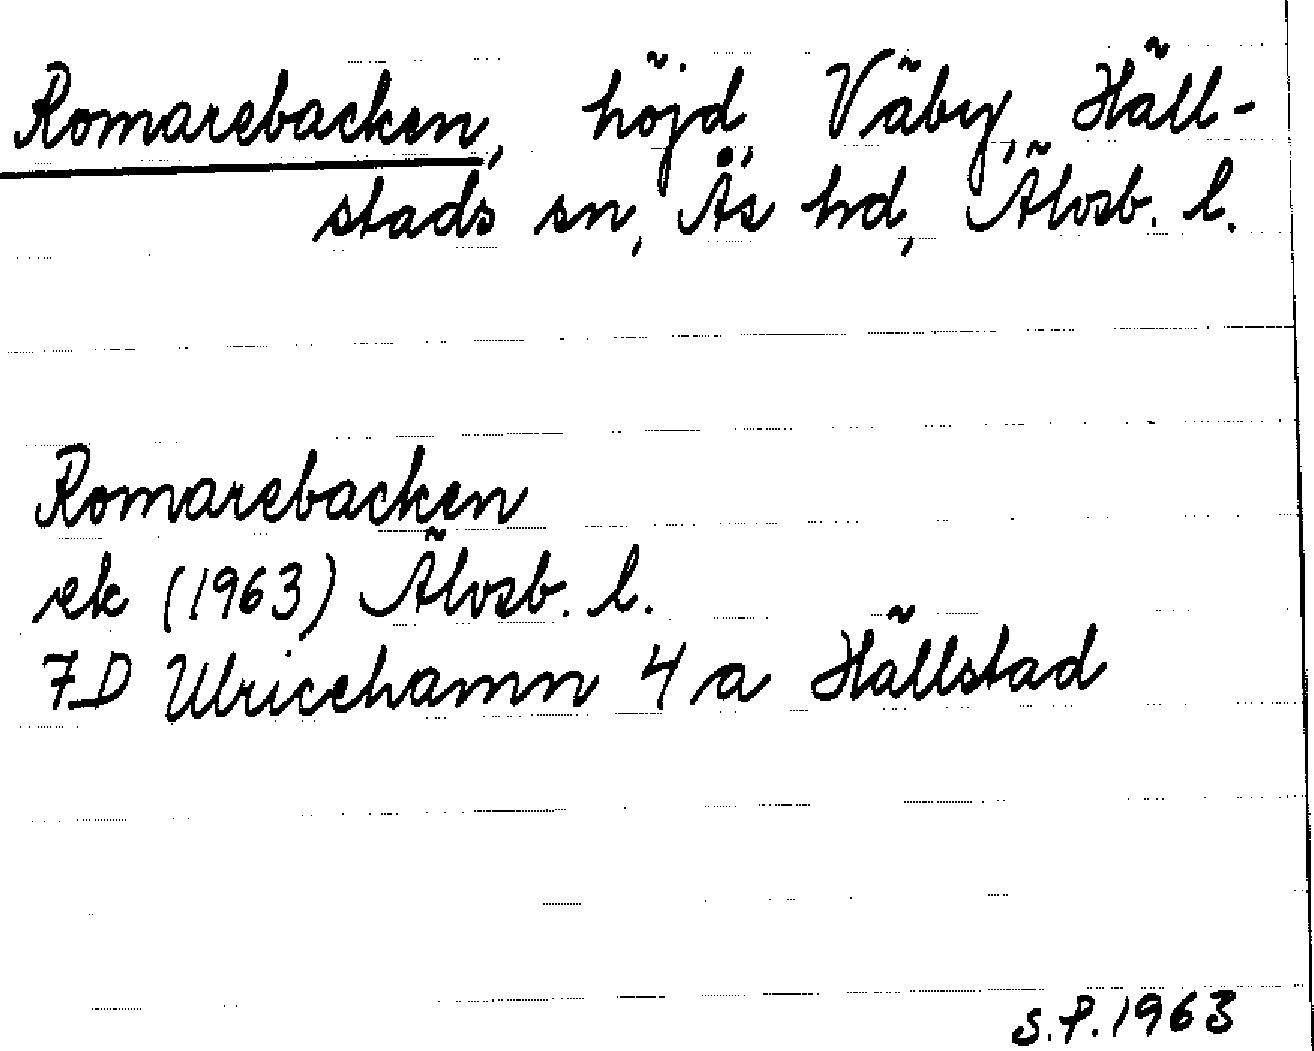 Romarebacken, höjd, Väby, Häll-
stads sn, Ås hd, Älvsb. l.
Romarebacken
ek (1963) Älvsb. l.
7D Ulricehamn 4 a Hällstad
S.P. 1963